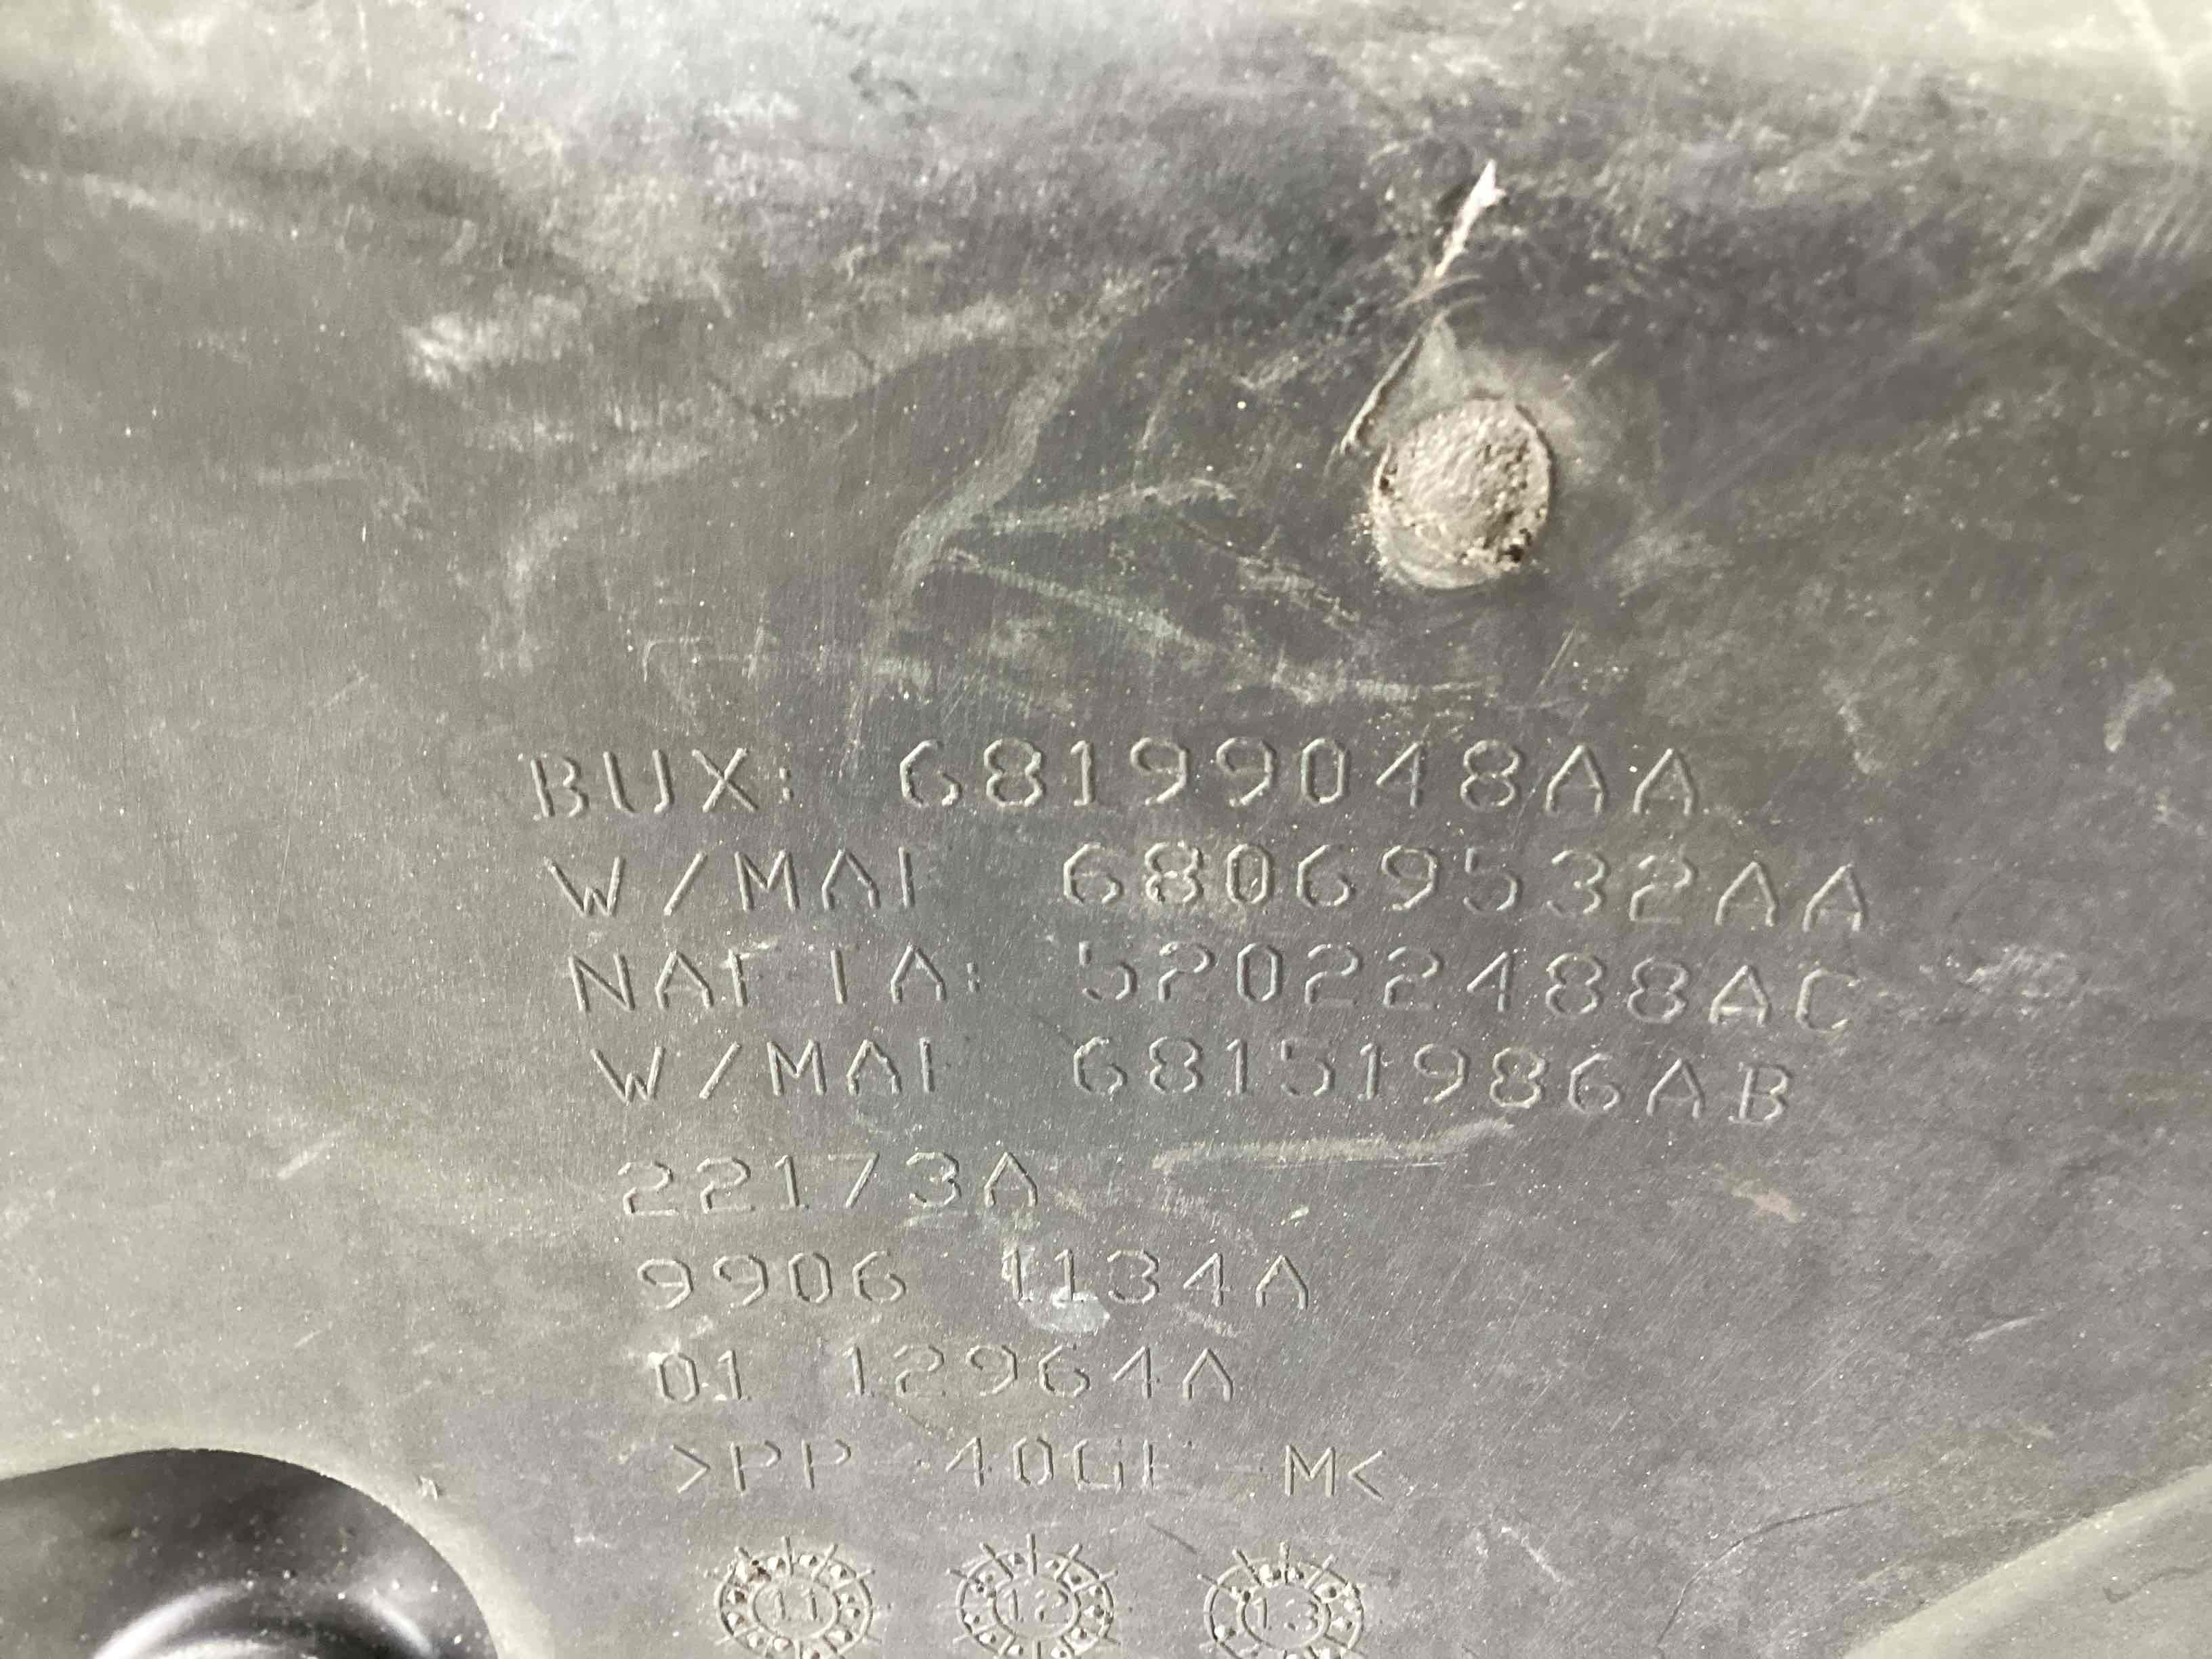 BUX: 68199048AA
W/MAF 68069532AA
NAFTA: 52022488AC
W/MAF 68151986AB
22173A
9906 1134A
01 12964A
>PP-40GF-M<
11 12 13